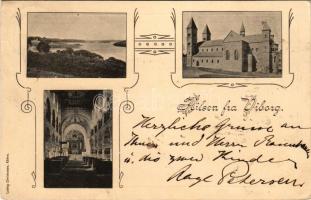 Hilsen fra Viborg.
Herzliche Grüsse an
und Herrn
u. die zwei Kinder
Aage Petersen